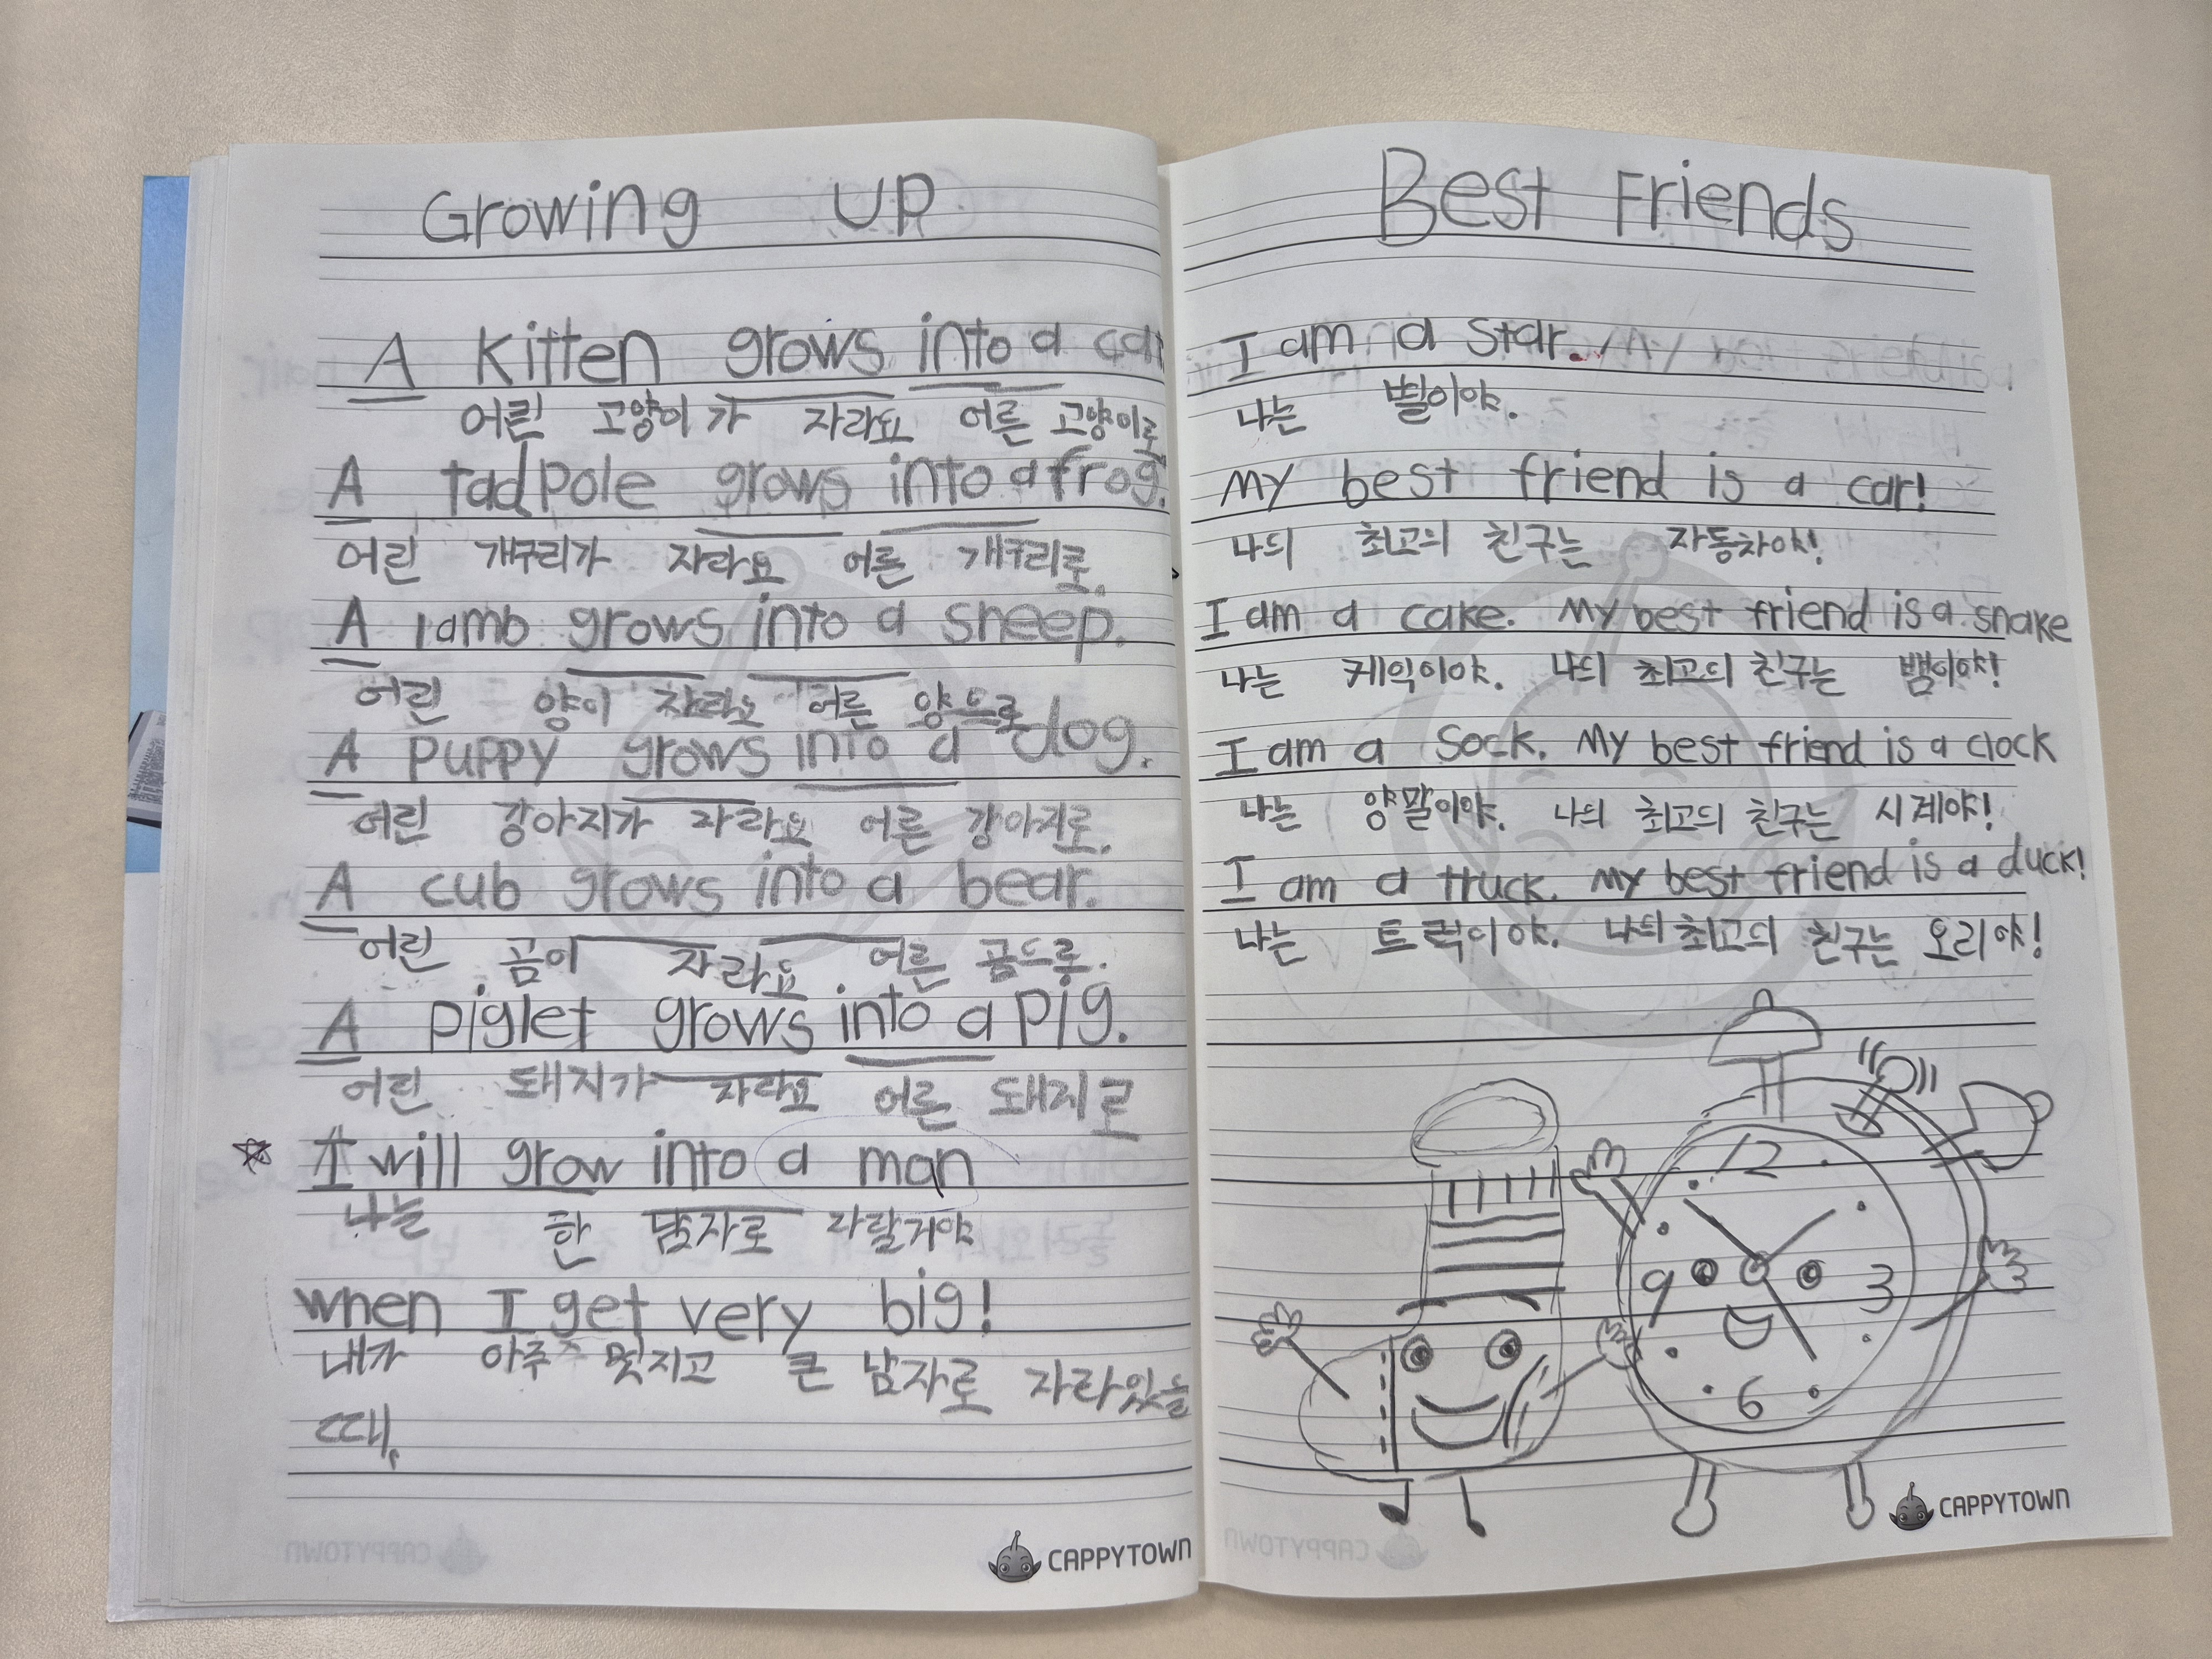 Growing UP
A Kitten grows into a cat
어린 고양이가 자라요 어른 고양이로
A tadpole grows into a frog.
어린 개구리가 자라요 어른 개구리로.
A lamb grows into a sheep.
어린 양이 자라요 어른 양으로
A puppy grows into a dog.
어린 강아지가 자라요 어른 강아지로.
A cub grows into a bear.
어린 곰이 자라요 어른 곰으로.
A piglet grows into a pig.
어린 돼지가 자라요 어른 돼지로
I will grow into a man
나는 한 남자로 자랄거야
when I get very big!
내가 아주 멋지고 큰 남자로 자라있을
때.
CAPPYTOWN
Best Friends
I am a star.
나는 별이야.
My best friend is a car!
나의 최고의 친구는 자동차야!
I am a cake. My best friend is a snake
나는 케익이야. 나의 최고의 친구는 뱀이야!
I am a sock. My best friend is a clock
나는 양말이야. 나의 최고의 친구는 시계야!
I am a truck. My best friend is a duck!
나는 트럭이야. 나의 최고의 친구는 오리야!
12
9 3
6
CAPPYTOWN